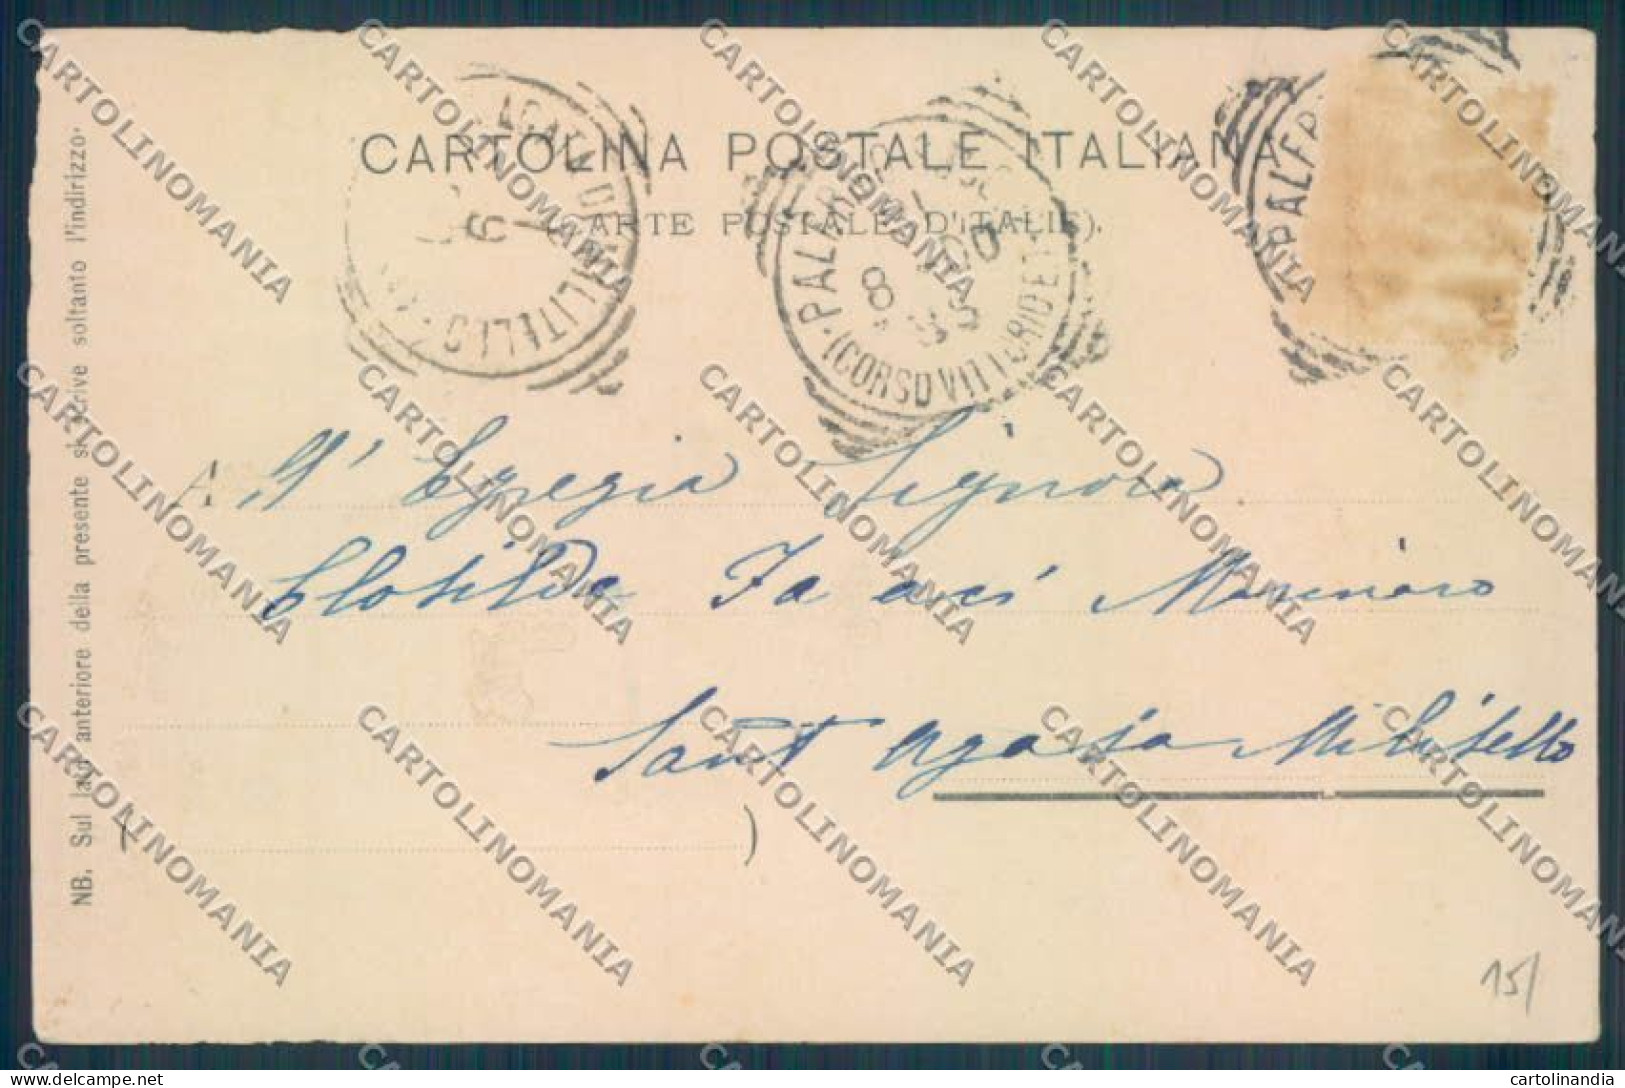 CARTOLINA POSTALE ITALIANA
(CARTE POSTALE D'ITALIE).
NB. Sul lato anteriore della presente si scrive soltanto l'indirizzo.
PALERMO
(CORSO VITTORIO E.)
8
PALER
A ll' Egregia Signora
Clotilde
Sant Agata Militello
15/
CARTOLINOMANIA
cartolinandia